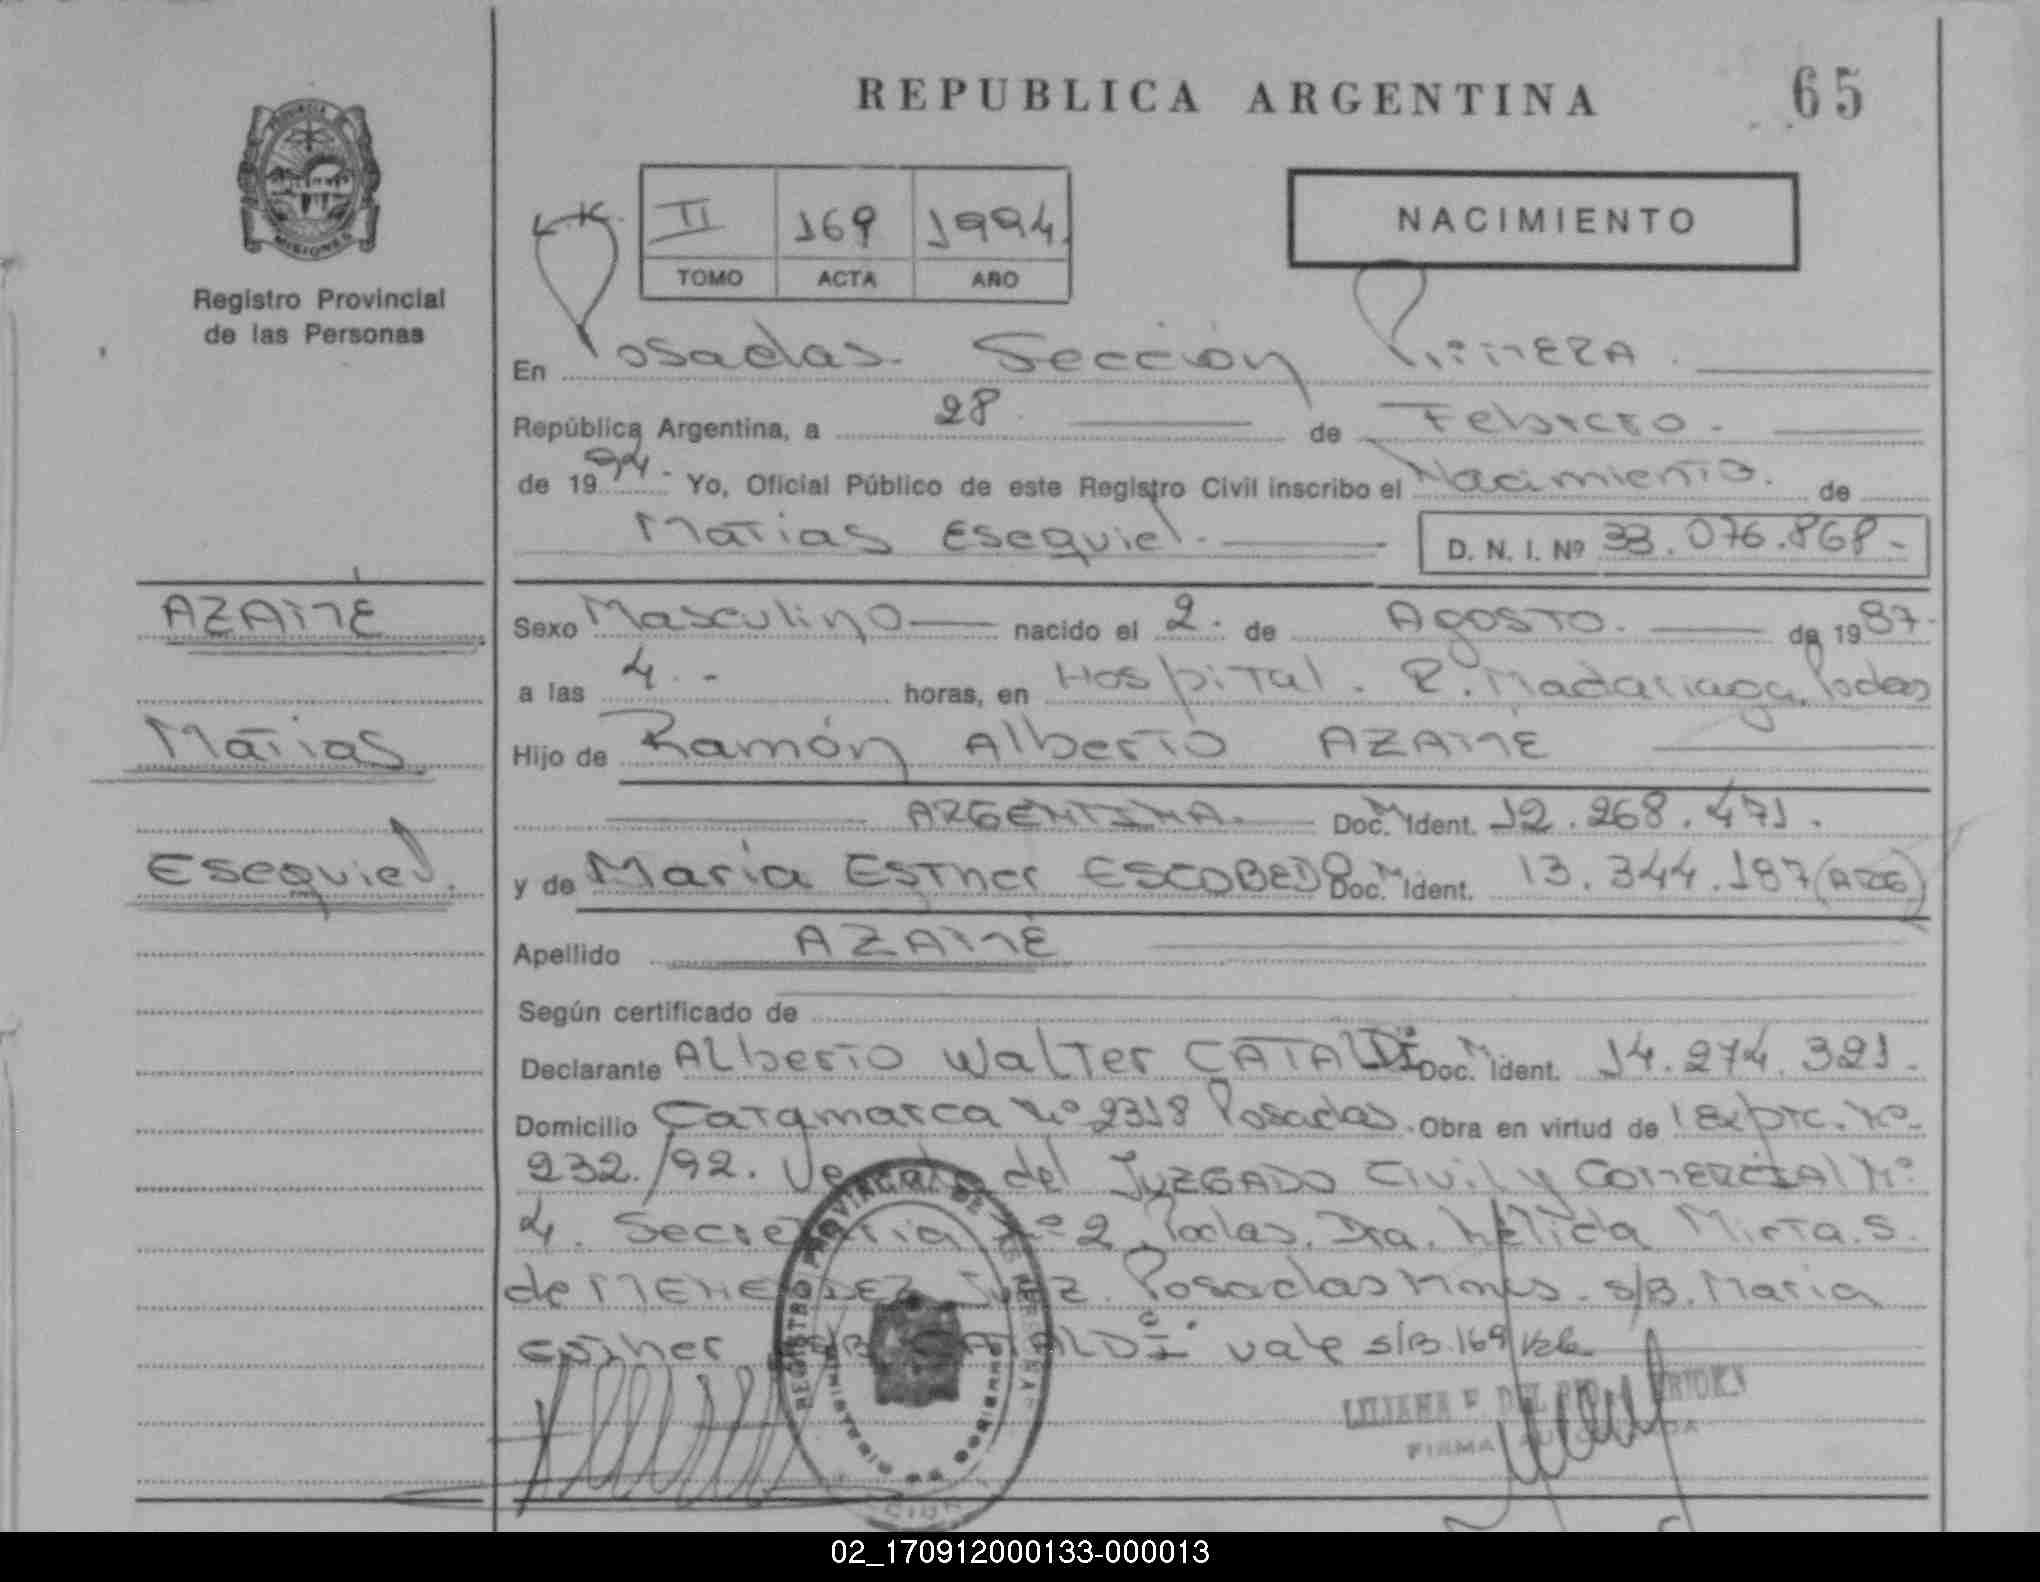 REPUBLICA ARGENTINA 65
PROVINCIA
MISIONES
Registro Provincial
de las Personas
II 169 1994
TOMO ACTA AÑO
NACIMIENTO
En Posadas. Sección Primera.
República Argentina, a 28 de Febrero.
de 1994. Yo, Oficial Público de este Registro Civil inscribo el Nacimiento. de
Matias Esequiel. D. N. I. Nº 33.076.868-
AZAME
Sexo Masculino nacido el 2. de Agosto. de 1987.
a las 4.- horas, en Hospital. R. Madariaga. Podas
Matias
Hijo de Ramón Alberto AZAME
ARGENTINA. Doc. M Ident. 12.268.471.
Esequiel.
y de Maria Esther ESCOBEDO Doc. M Ident. 13.344.187 (ARG)
Apellido AZAME
Según certificado de
Declarante Alberto Walter CATALDI Doc. M Ident. 14.274.321.
Domicilio Catamarca Nº 2318 Posadas. Obra en virtud de Expte. Nº
232./92. del JUZGADO Civil y COMERCIAL Nº
4. Secretaria Nº 2 Podas. Dra. Nélida Mirta. S.
de MENENDEZ Juez. Posadas Mnes. s/B. Maria
esther s/B CATALDI. vale s/B. 169
REGISTRO PROVINCIAL DE LAS PERSONAS
MINISTERIO DE GOBIERNO
LILIANA F. DEL
FIRMA AUTORIZADA
02_170912000133-000013